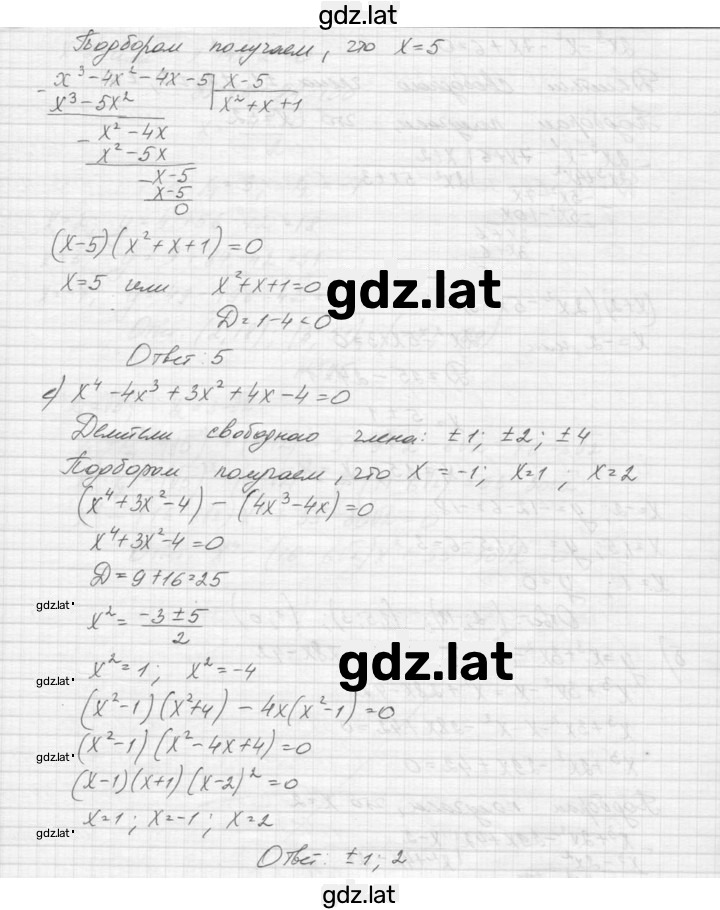 gdz.lat
Подбором получаем, что x=5
x³-4x²-4x-5 | x-5
x³-5x² x²+x+1
x²-4x
x²-5x
x-5
x-5
0
(x-5)(x²+x+1)=0
x=5 или x²+x+1=0
gdz.lat
D=1-4<0
Ответ: 5
е) x⁴-4x³+3x²+4x-4=0
Делители свободного члена: ±1; ±2; ±4
Подбором получаем, что x=-1; x=1; x=2
(x⁴+3x²-4) - (4x³-4x)=0
x⁴+3x²-4=0
D=9+16=25
gdz.lat
x² = (-3±5)/2
gdz.lat
x²=1; x²=-4
gdz.lat
(x²-1)(x²+4) - 4x(x²-1)=0
(x²-1)(x²-4x+4)=0
gdz.lat
(x-1)(x+1)(x-2)²=0
x=1; x=-1; x=2
gdz.lat
Ответ: ±1; 2
gdz.lat